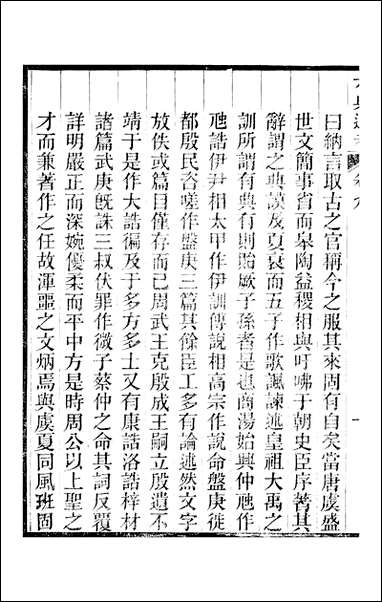 曰納言取古之官稱今之服其來固有自矣當唐虞盛
世文簡事省而皋陶益稷相與吁咈于朝史臣序著其
辭謂之典謨及夏衰而五子作歌諷諫述皇祖大禹之
訓所謂有典有則貽厥子孫者是也商湯始興仲虺作
虺誥伊尹相太甲作伊訓傅說相高宗作說命盤庚徙
都殷民咨嗟作盤庚三篇其餘臣工多有論述然文字
放佚或篇目僅存而已周武王克殷成王嗣立殷遺不
靖于是作大誥徧及于多方多士又有康誥洛誥梓材
諸篇武庚旣誅三叔伏罪作微子蔡仲之命其詞反覆
詳明嚴正而深婉優柔而平中方是時周公以上聖之
才而兼著作之任故渾噩之文炳焉與虞夏同風班固